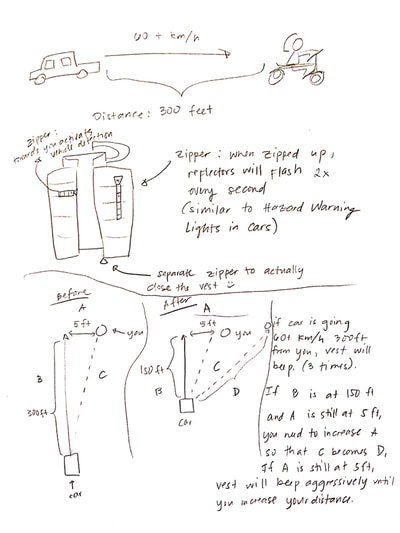 60 + km/h
Distance: 300 feet
zipper:
towards you activate
vehicle detection
zipper: when zipped up,
reflectors will flash 2x
every second
(similar to Hazard Warning
Lights in cars)
separate zipper to actually
close the vest
Before
A
5 ft
you
B
300ft
C
car
After
A
5ft
you
150ft
B
C
D
car
if car is going
60+ km/h 300ft
from you, vest will
beep. (3 times).
If B is at 150 ft
and A is still at 5ft,
you need to increase A
so that C becomes D,
If A is still at 5ft,
vest will beep aggressively until
you increase your distance.